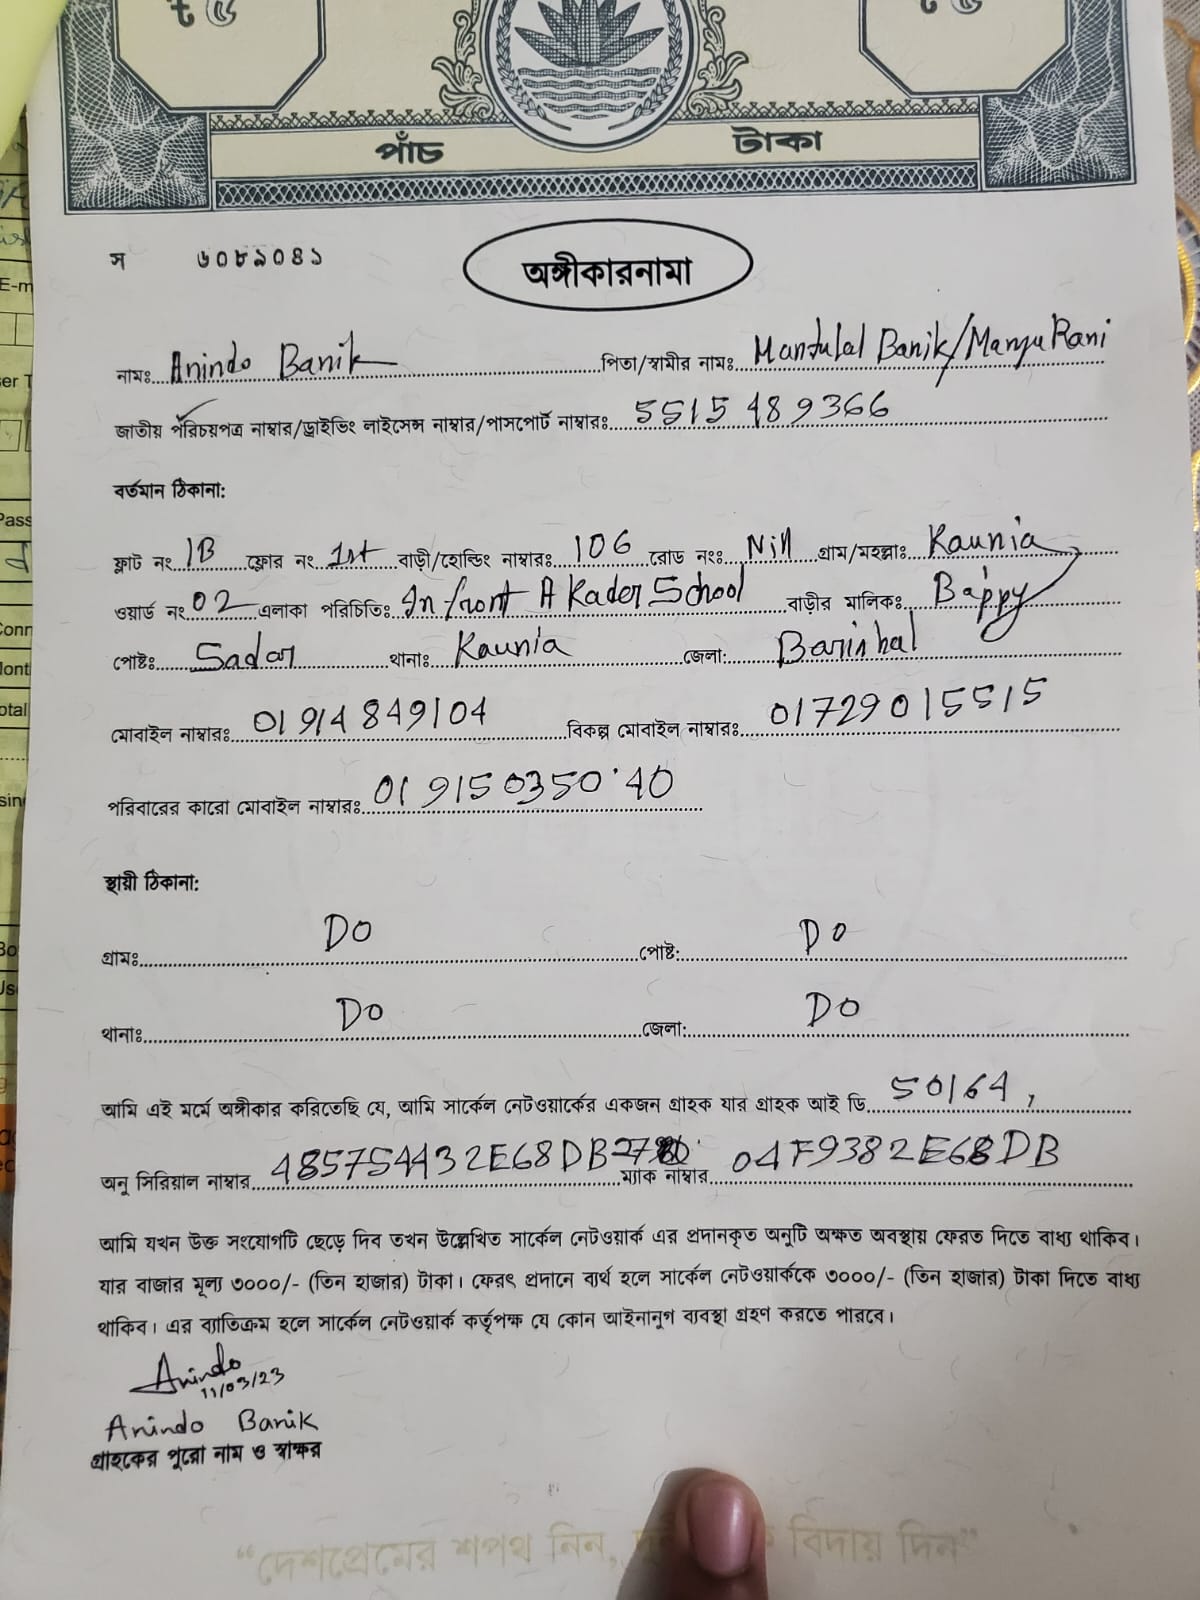 পাঁচ টাকা
স ৬০৮৯০৪১
অঙ্গীকারনামা
নামঃ Anindo Banik পিতা/স্বামীর নামঃ Mantulal Banik/Manju Rani
জাতীয় পরিচয়পত্র নাম্বার/ড্রাইভিং লাইসেন্স নাম্বার/পাসপোর্ট নাম্বারঃ 5515489366
বর্তমান ঠিকানা:
ফ্লাট নং 1B ফ্লোর নং 1st বাড়ী/হোল্ডিং নাম্বারঃ 106 রোড নংঃ Nill গ্রাম/মহল্লাঃ Kaunia
ওয়ার্ড নং 02 এলাকা পরিচিতিঃ In front A Kader School বাড়ীর মালিকঃ Bappy
পোষ্টঃ Sadar থানাঃ Kaunia জেলা: Barishal
মোবাইল নাম্বারঃ 01914849104 বিকল্প মোবাইল নাম্বারঃ 01729015515
পরিবারের কারো মোবাইল নাম্বারঃ 01915035040
স্থায়ী ঠিকানা:
গ্রামঃ DO পোষ্ট: DO
থানাঃ DO জেলা: DO
আমি এই মর্মে অঙ্গীকার করিতেছি যে, আমি সার্কেল নেটওয়ার্কের একজন গ্রাহক যার গ্রাহক আই ডি 50164,
অনু সিরিয়াল নাম্বার 485754432E68DB ম্যাক নাম্বার 04F9382E68DB
আমি যখন উক্ত সংযোগটি ছেড়ে দিব তখন উল্লেখিত সার্কেল নেটওয়ার্ক এর প্রদানকৃত অনুটি অক্ষত অবস্থায় ফেরত দিতে বাধ্য থাকিব।
যার বাজার মূল্য ৩০০০/- (তিন হাজার) টাকা। ফেরৎ প্রদানে ব্যর্থ হলে সার্কেল নেটওয়ার্ককে ৩০০০/- (তিন হাজার) টাকা দিতে বাধ্য
থাকিব। এর ব্যতিক্রম হলে সার্কেল নেটওয়ার্ক কর্তৃপক্ষ যে কোন আইনানুগ ব্যবস্থা গ্রহণ করতে পারবে।
Anindo
11/03/23
Anindo Banik
গ্রাহকের পুরো নাম ও স্বাক্ষর
“দেশপ্রেমের শপথ নিন, বিদায় দিন”